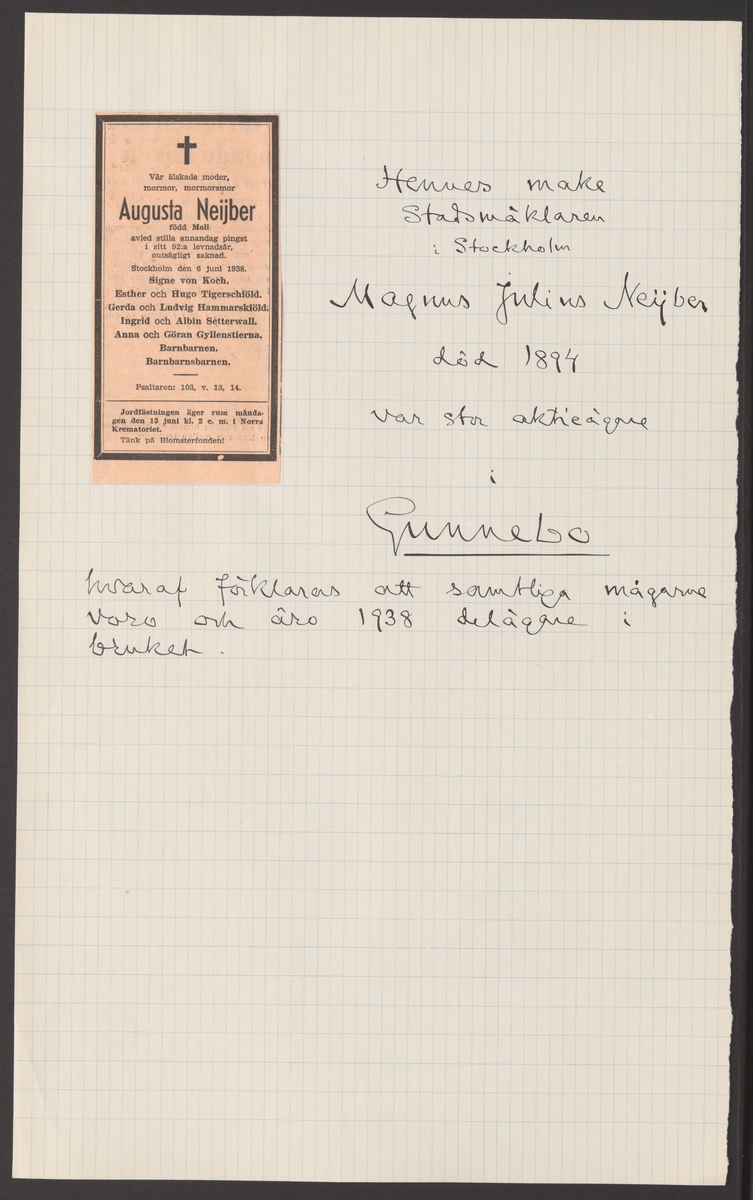 Vår älskade moder,
mormor, mormorsmor
Augusta Neijber
född Moll
avled stilla annandag pingst
i sitt 92:a levnadsår,
outsägligt saknad.
Stockholm den 6 juni 1938.
Signe von Koch.
Esther och Hugo Tigerschiöld.
Gerda och Ludvig Hammarskiöld.
Ingrid och Albin Setterwall.
Anna och Göran Gyllenstierna.
Barnbarnen.
Barnbarnsbarnen.
Psaltaren: 103, v. 13, 14.
Jordfästningen äger rum månda-
gen den 13 juni kl. 2 e. m. i Norra
Krematoriet.
Tänk på Blomsterfonden!
Hennes make
Stadsmäklaren
i Stockholm
Magnus Julius Neijber
död 1894
var stor aktieägare
i
Gunnebo
hvaraf förklaras att samtliga mågarne
voro och äro 1938 delägare i
bruket.